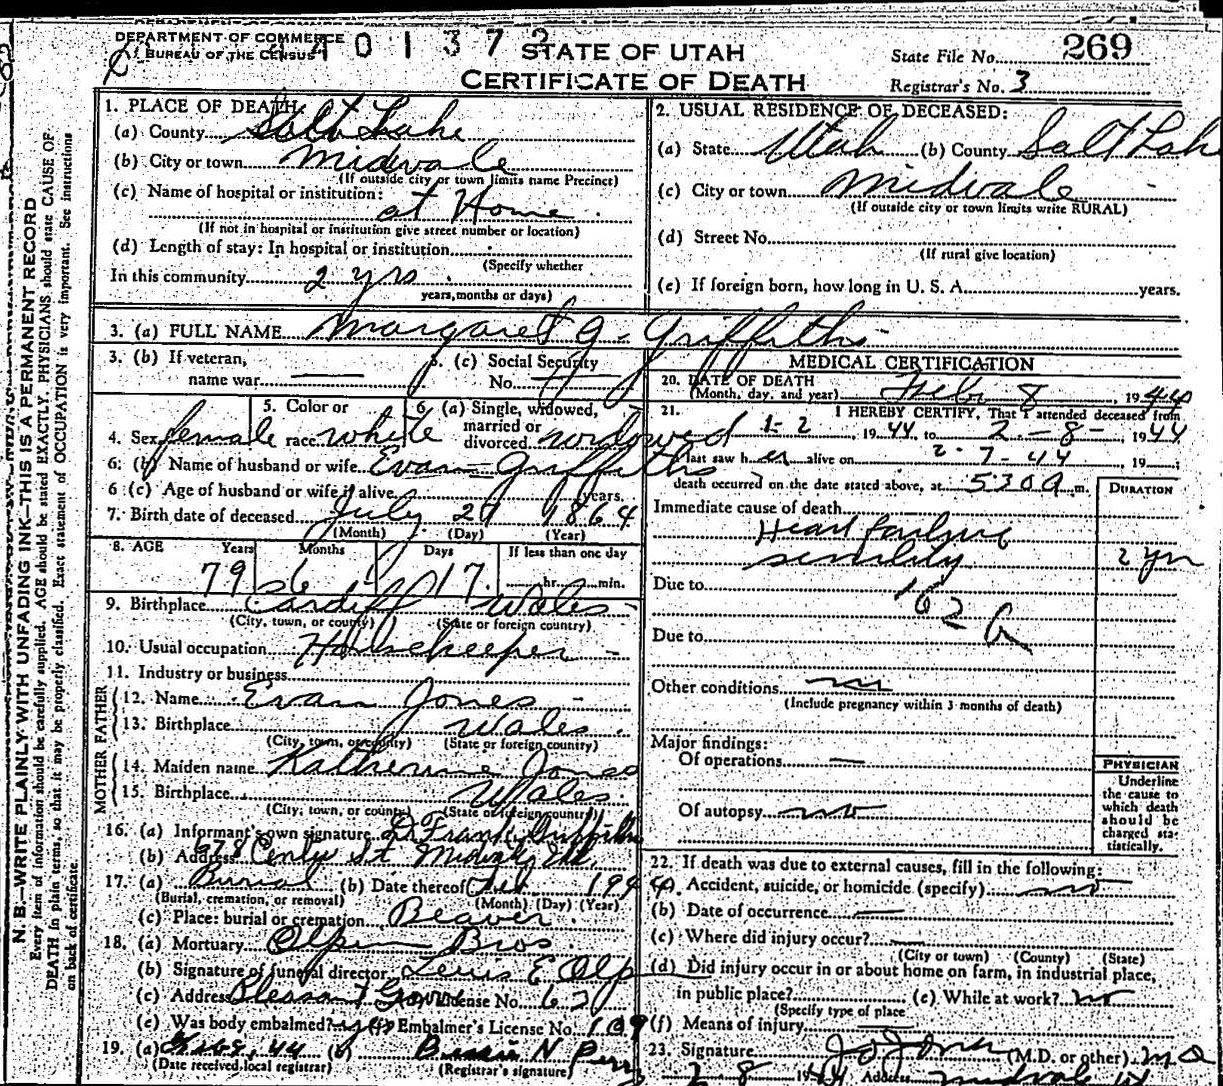 DEPARTMENT OF COMMERCE
BUREAU OF THE CENSUS
4 4 0 1 3 7 2
STATE OF UTAH
CERTIFICATE OF DEATH
State File No. 269
Registrar's No. 3
N. B.—WRITE PLAINLY WITH UNFADING INK—THIS IS A PERMANENT RECORD
Every item of information should be carefully supplied. AGE should be stated EXACTLY. PHYSICIANS should state CAUSE OF
DEATH in plain terms, so that it may be properly classified. Exact statement of OCCUPATION is very important. See instructions
on back of certificate.
1. PLACE OF DEATH:
(a) County Salt Lake
(b) City or town Midvale
(If outside city or town limits name Precinct)
(c) Name of hospital or institution:
at Home
(If not in hospital or institution give street number or location)
(d) Length of stay: In hospital or institution
(Specify whether
In this community 2 yrs.
years, months or days)
2. USUAL RESIDENCE OF DECEASED:
(a) State Utah (b) County Salt Lake
(c) City or town Midvale
(If outside city or town limits write RURAL)
(d) Street No.
(If rural give location)
(e) If foreign born, how long in U. S. A. years.
3. (a) FULL NAME Margaret J - Griffiths
3. (b) If veteran,
name war
3. (c) Social Security
No.
4. Sex female
5. Color or
race white
6. (a) Single, widowed,
married or
divorced widowed
6. (b) Name of husband or wife Evan Griffiths
6 (c) Age of husband or wife if alive years.
7. Birth date of deceased July 21 1864
(Month) (Day) (Year)
8. AGE Years Months Days If less than one day
79 6 17 hr. min.
9. Birthplace Cardiff Wales
(City, town, or county) (State or foreign country)
10. Usual occupation Housekeeper
11. Industry or business
FATHER
12. Name Evan Jones
13. Birthplace Wales
(City, town, or county) (State or foreign country)
MOTHER
14. Maiden name Katherine Jones
15. Birthplace Wales
(City, town, or county) (State or foreign country)
16. (a) Informant's own signature D. Frank Griffiths
(b) Address 678 Center St Midvale Ut.
17. (a) Burial (b) Date thereof Feb 194
(Burial, cremation, or removal) (Month) (Day) (Year)
(c) Place: burial or cremation Beaver
18. (a) Mortuary Olpin Bros.
(b) Signature of funeral director Lewis E Olp
(c) Address Pleasant Grove License No. 62
(e) Was body embalmed? yes Embalmer's License No. 109
19. (a) 44 (b) Bessie N
(Date received local registrar) (Registrar's signature)
MEDICAL CERTIFICATION
20. DATE OF DEATH
(Month, day, and year) Feb. 8, 1944
21. I HEREBY CERTIFY, That I attended deceased from
1-2, 1944 to 2-8-1944
last saw her alive on 2-7-44, 19 ;
death occurred on the date stated above, at 530 a m.
DURATION
Immediate cause of death
Heart failure
senility 2 yr
Due to
162 a
Due to
Other conditions no
(Include pregnancy within 3 months of death)
Major findings:
Of operations —
Of autopsy no
PHYSICIAN
Underline
the cause to
which death
should be
charged sta-
tistically.
22. If death was due to external causes, fill in the following:
Accident, suicide, or homicide (specify) no
(b) Date of occurrence —
(c) Where did injury occur? —
(City or town) (County) (State)
(d) Did injury occur in or about home on farm, in industrial place,
in public place? (e) While at work? no
(Specify type of place
(f) Means of injury
23. Signature Jones (M.D. or other) M D
2-8 1944 Address Midvale Ut